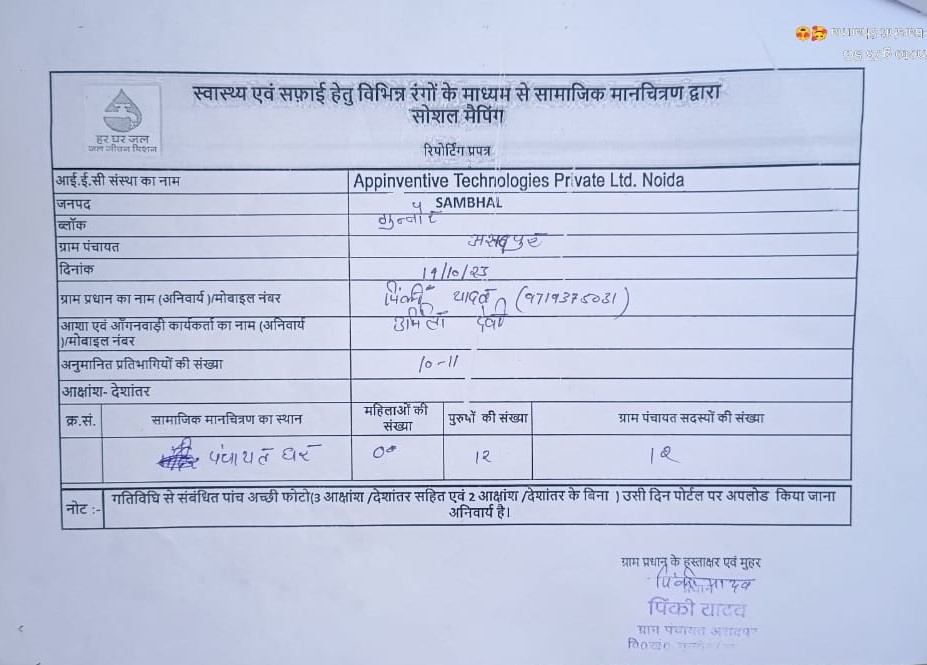 स्वास्थ्य एवं सफ़ाई हेतु विभिन्न रंगों के माध्यम से सामाजिक मानचित्रण द्वारा
सोशल मैपिंग
हर घर जल
जल जीवन मिशन
रिपोर्टिंग प्रपत्र
आई.ई.सी संस्था का नाम Appinventive Technologies Private Ltd. Noida
जनपद SAMBHAL
ब्लॉक गुन्नौर
ग्राम पंचायत असदपुर
दिनांक 19/10/23
ग्राम प्रधान का नाम (अनिवार्य )/मोबाइल नंबर पिंकी यादव (9719375031)
आशा एवं आँगनवाड़ी कार्यकर्ता का नाम (अनिवार्य
)/मोबाइल नंबर उर्मिला देवी
अनुमानित प्रतिभागियों की संख्या 10-11
आक्षांश- देशांतर
क्र.सं. सामाजिक मानचित्रण का स्थान महिलाओं की संख्या पुरुषों की संख्या ग्राम पंचायत सदस्यों की संख्या
पंचायत घर 12 12
नोट :- गतिविधि से संबंधित पांच अच्छी फोटो(3 आक्षांश /देशांतर सहित एवं 2 आक्षांश /देशांतर के बिना ) उसी दिन पोर्टल पर अपलोड किया जाना
अनिवार्य है।
ग्राम प्रधान के हस्ताक्षर एवं मुहर
पिंकी यादव
पिंकी यादव
ग्राम पंचायत असदपुर